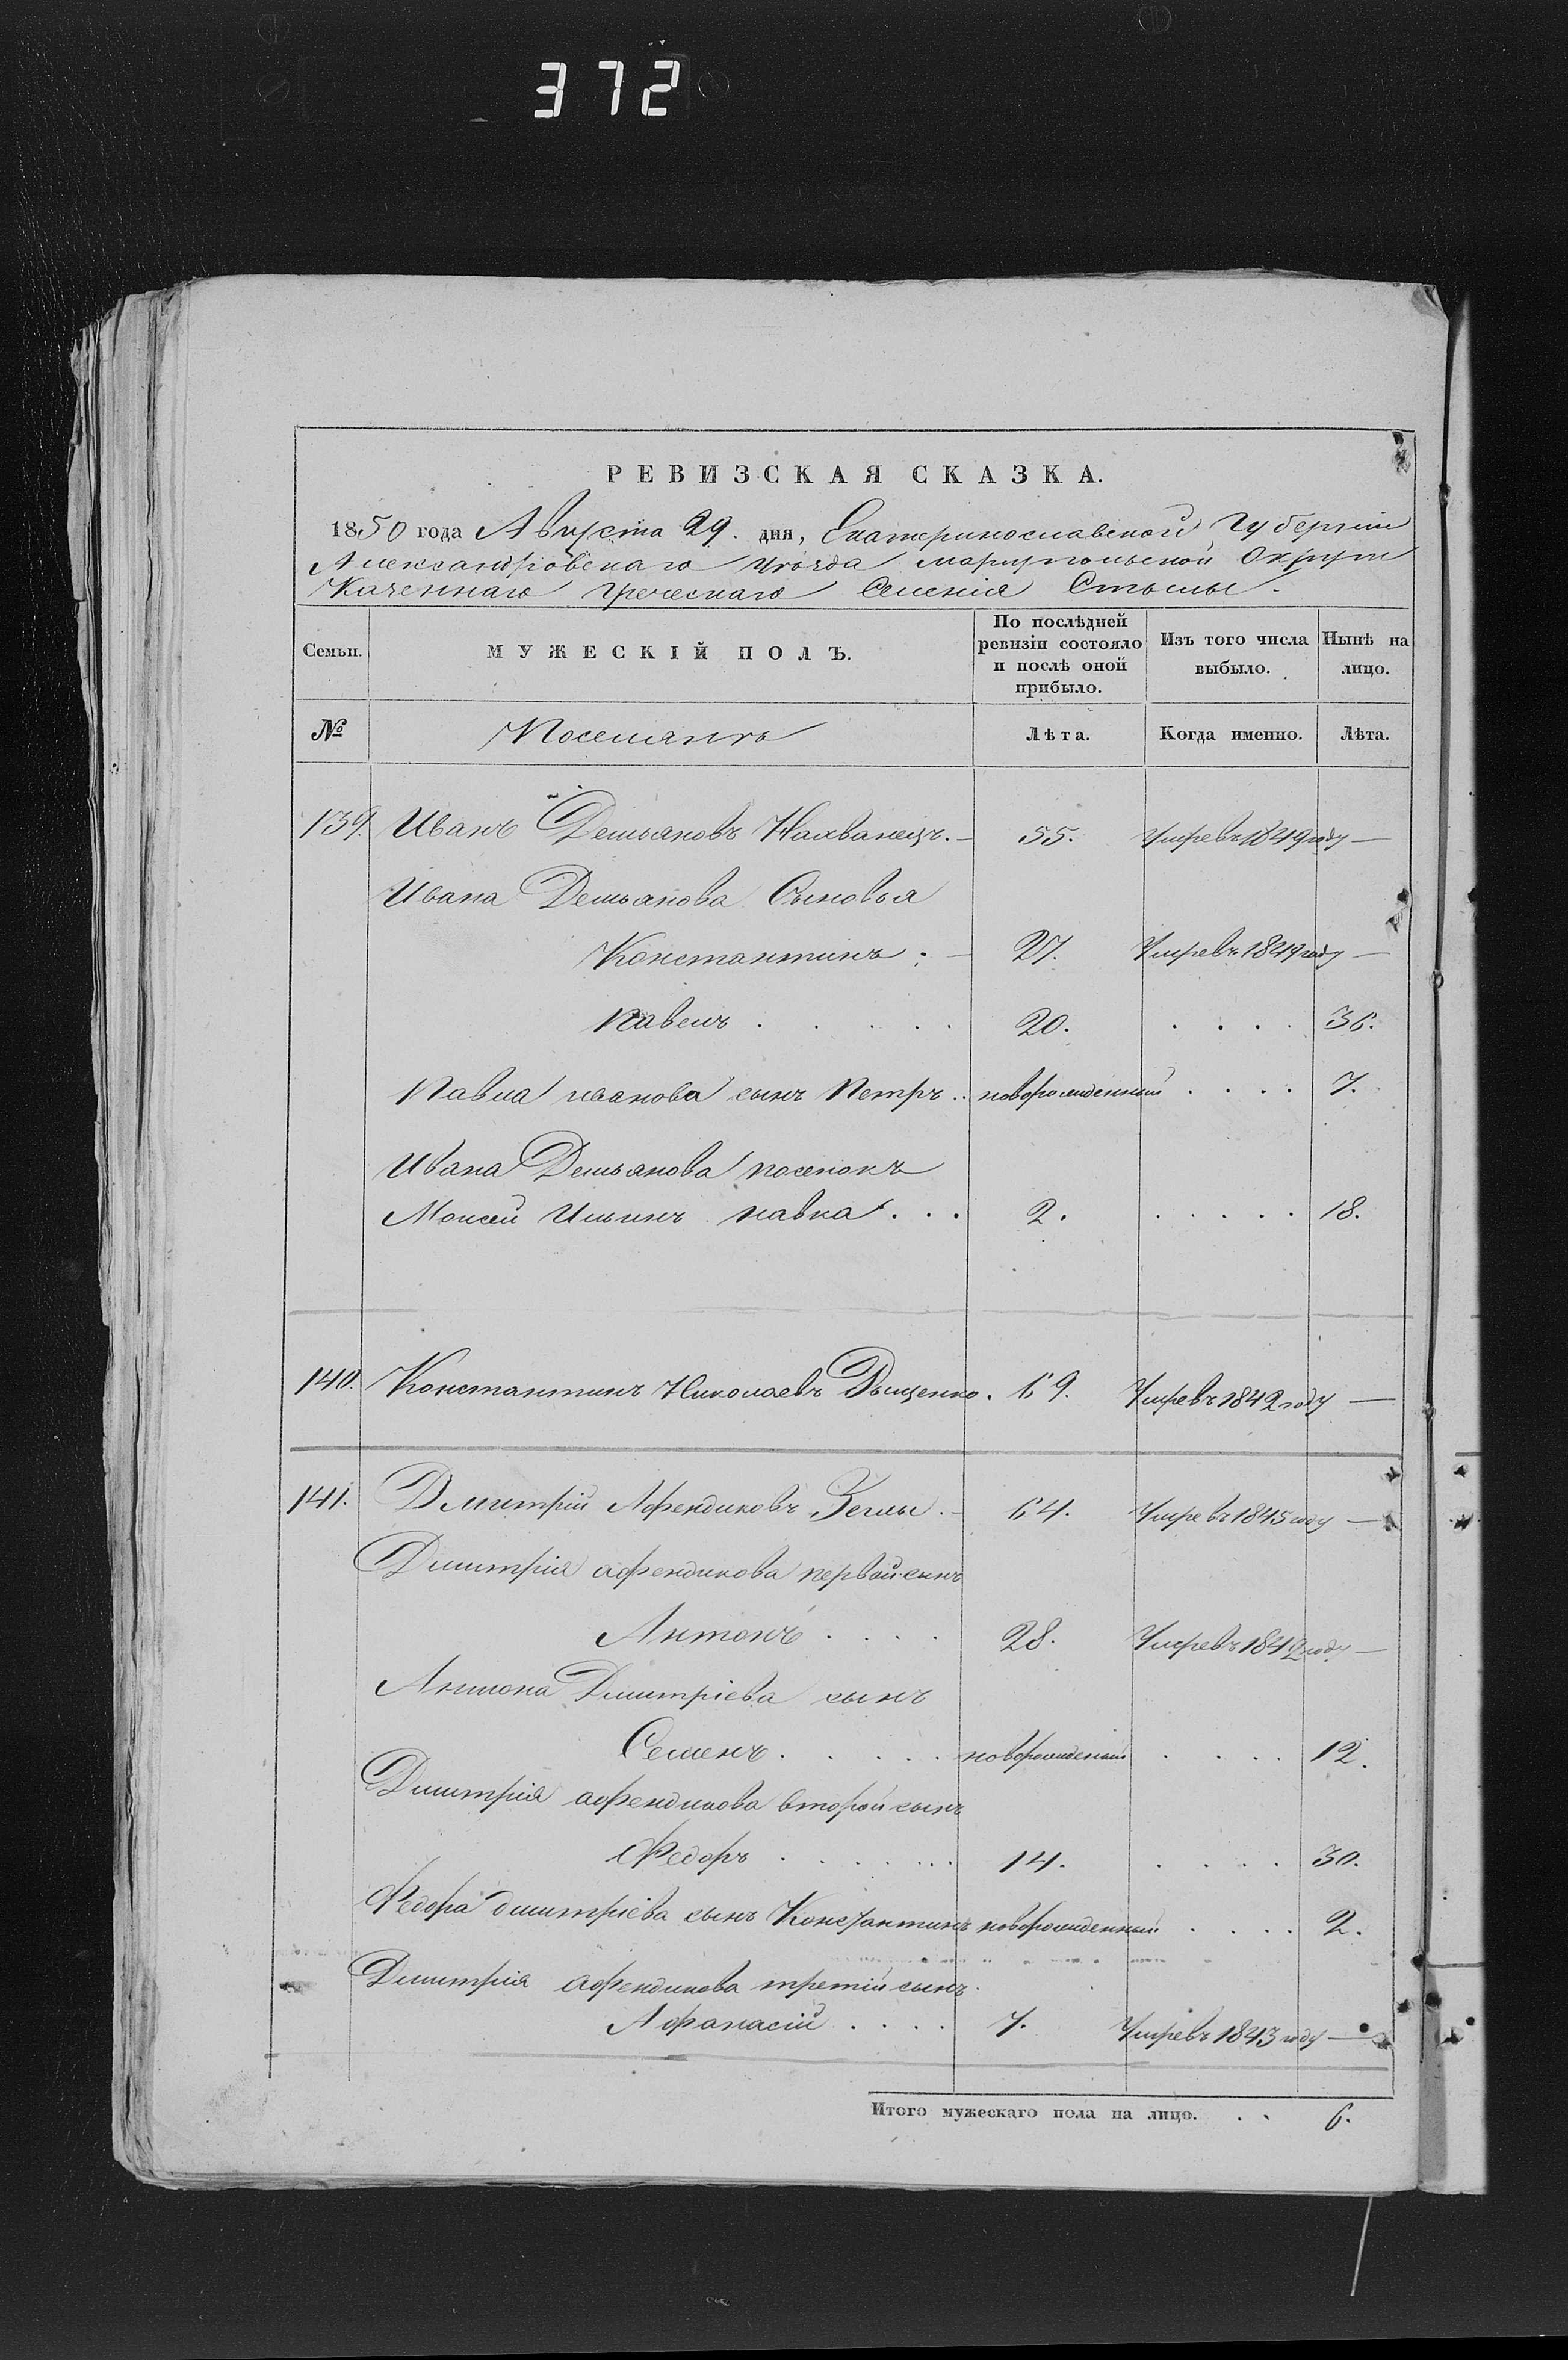 372
РЕВИЗСКАЯ СКАЗКА.
1850 года Августа 29. дня, Екатеринославской Губернии
Александровскаго уѣзда Мариупольской Округи
Казеннаго Греческаго Селенія Стылы.
Семьи.
МУЖЕСКІЙ ПОЛЪ.
По послѣдней ревизіи состояло и послѣ оной прибыло.
Изъ того числа выбыло.
Нынѣ на лицо.
№
Поселянъ
Лѣта.
Когда именно.
Лѣта.
139. Иванъ Демьяновъ Налванецъ.— 55. Умре въ 1849 году —
Ивана Демьянова Сыновья
Константинъ . — 27. Умре въ 1849 году —
Павелъ . . . . . 20. . . . . 36.
Павла иванова сынъ Петръ . . новорожденный . . . . 7.
Ивана Демьянова
Моисей Ильинъ Павка . . . 2. . . . . . 18.
140. Константинъ Николаевъ Дыщенко. 69. Умре въ 1842 году —
141. Дмитрій Афендиковъ Зеглы.— 64. Умре въ 1845 году —
Дмитрія афендикова первый сынъ
Антонъ . . . . 28. Умре въ 1842 году —
Антона Дмитріева сынъ
Семенъ . . . . . новорожденный . . . . 12.
Дмитрія афендикова второй сынъ
Федоръ . . . . . . . 14. . . . . 30.
Федора дмитріева сынъ Константинъ новорожденный . . . . 2.
Дмитрія Афендикова третій сынъ.
Афанасій . . . . 7. Умре въ 1843 году —
Итого мужескаго пола на лицо. . . 6.